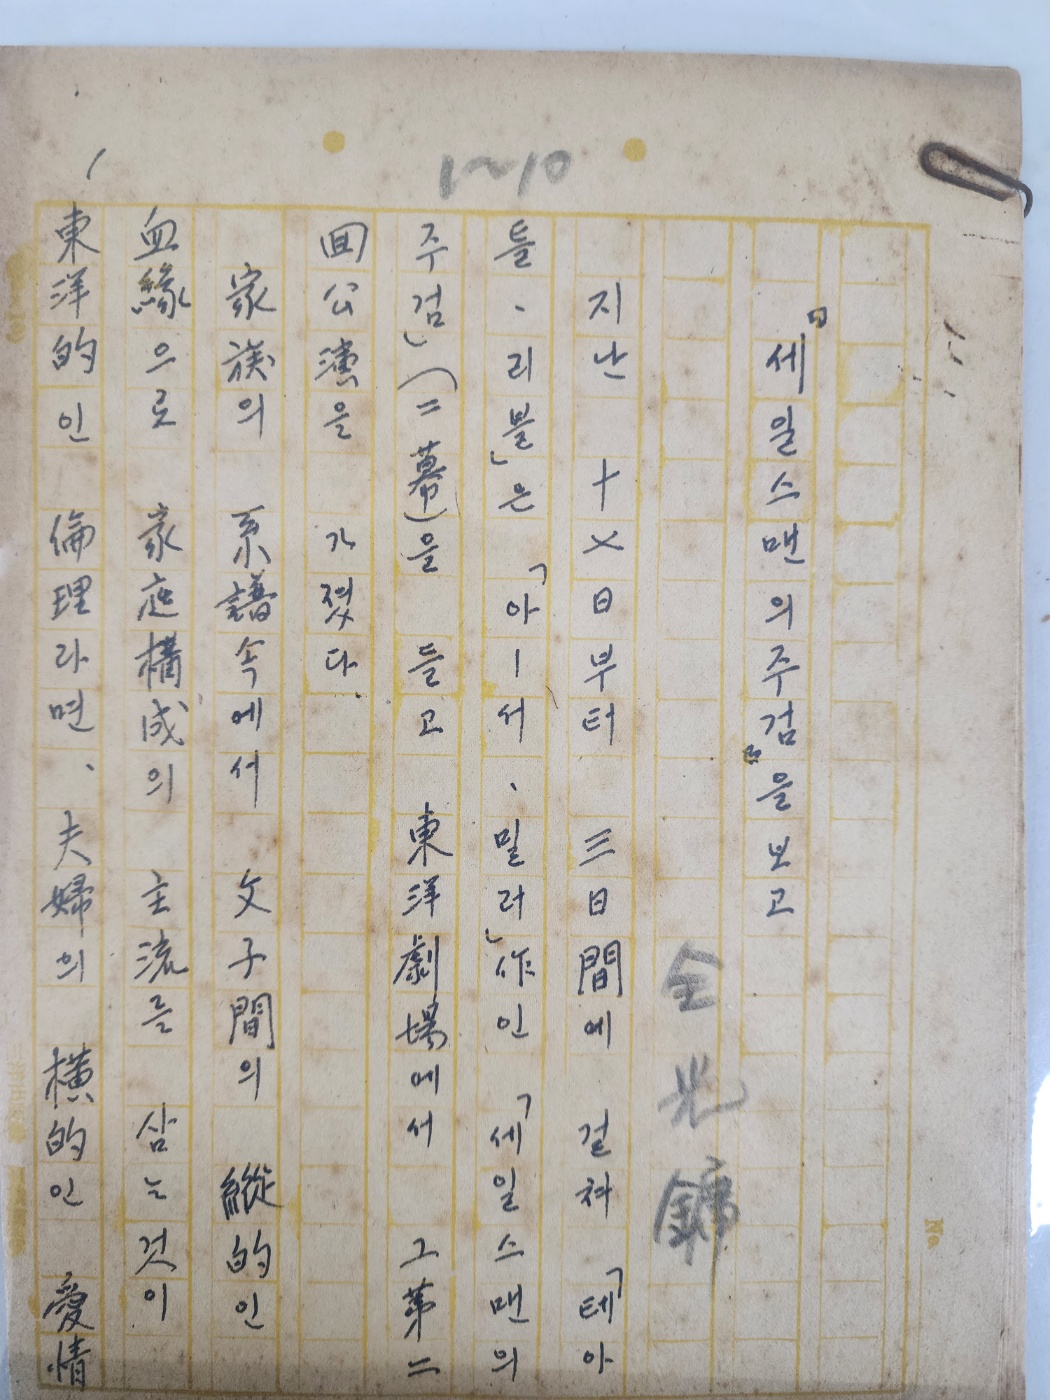 1~10
『세일스맨의주검』을 보고
全光鏞
지난 十乂日부터 三日間에 걸쳐 「테아
틀、리불」은 「아ー서、밀러」作인 「세일스맨의
주검」(二幕)을 들고 東洋劇場에서 그第二
回公演을 가졌다.
家族의 系譜속에서 父子間의 縱的인
血緣으로 家庭構成의 主流를 삼는것이
東洋的인 倫理라면、夫婦의 橫的인 愛情
No.